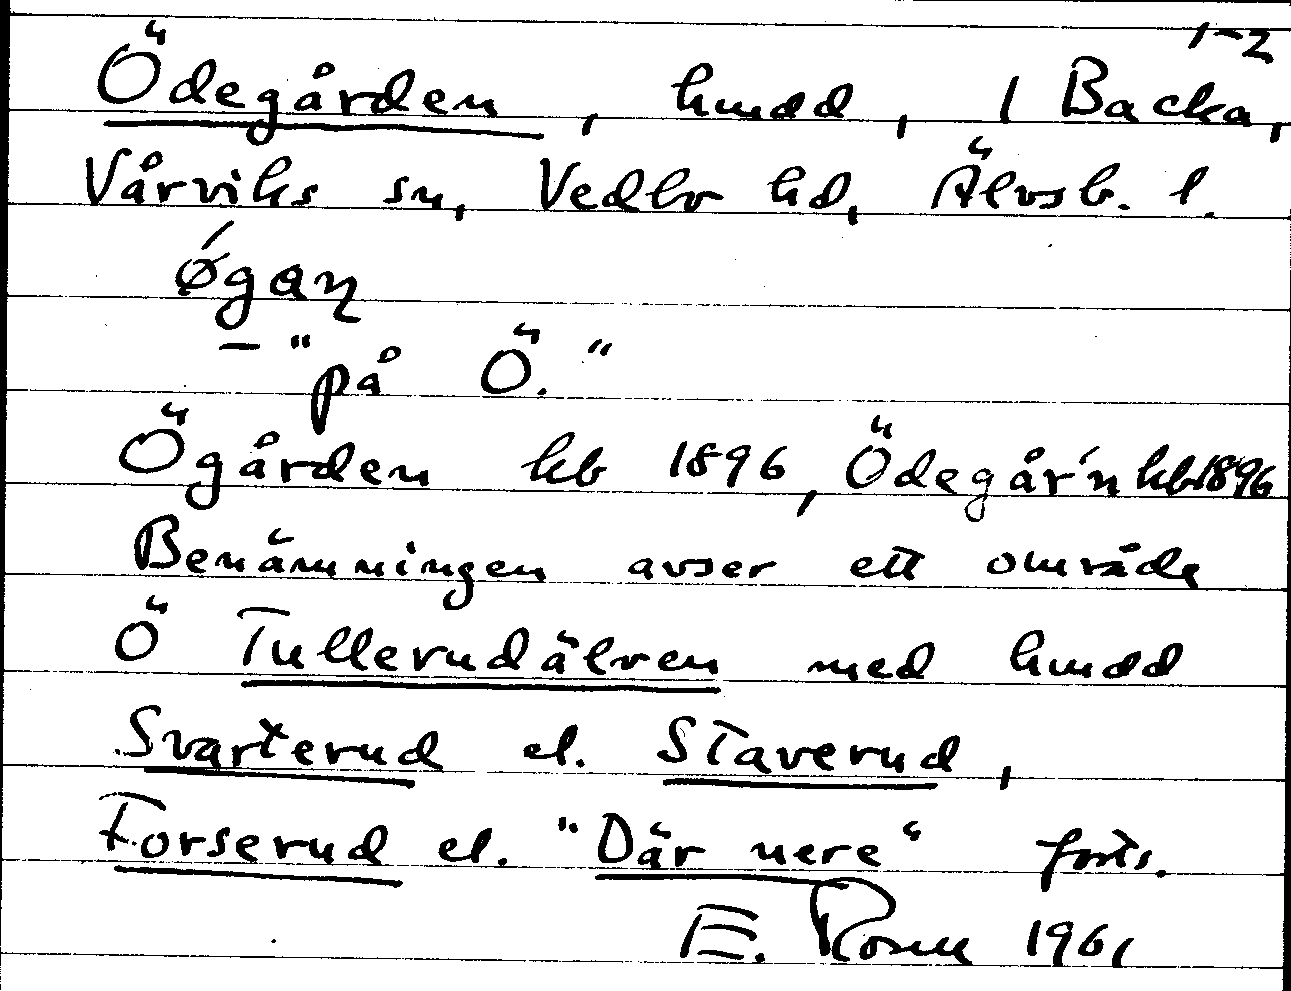 1-2
Ödegården, hmdd, 1 Backa,
Vårviks sn, Vedbo hd, Älvsb. l.
ǿgaɳ
- "på Ö."
Ögården kb 1896, Ödegår'n kb 1896
Benämningen avser ett område
Ö Tullerudälven med hmdd
Svarterud el. Staverud,
Forserud el. "Där nere" forts.
E. Rosell 1961